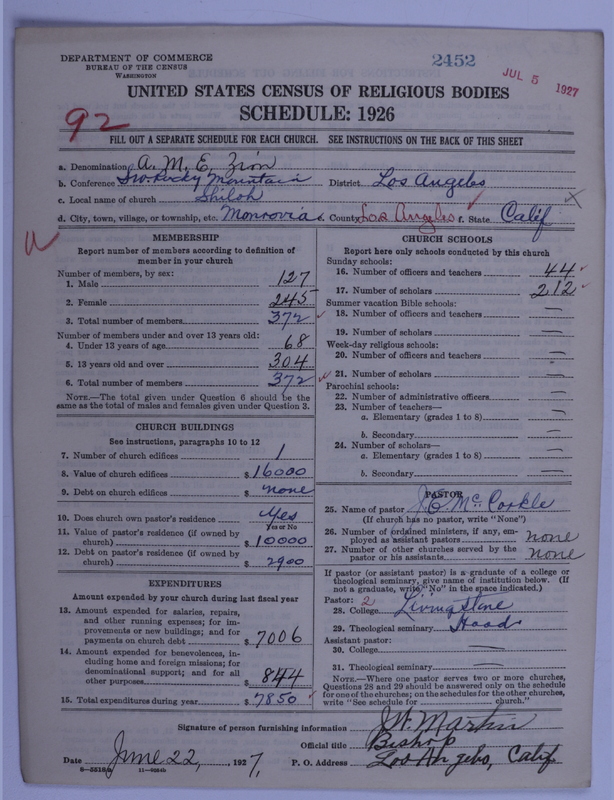 DEPARTMENT OF COMMERCE
BUREAU OF THE CENSUS
WASHINGTON
2452
JUL 5 1927
UNITED STATES CENSUS OF RELIGIOUS BODIES
SCHEDULE: 1926
92
FILL OUT A SEPARATE SCHEDULE FOR EACH CHURCH. SEE INSTRUCTIONS ON THE BACK OF THIS SHEET
a. Denomination A. M. E. Zion
b. Conference So. Rocky Mountain District Los Angeles
c. Local name of church Shiloh
d. City, town, village, or township, etc. Monrovia e. County Los Angeles f. State Calif
MEMBERSHIP
Report number of members according to definition of
member in your church
Number of members, by sex:
1. Male 127
2. Female 245
3. Total number of members 372
Number of members under and over 13 years old:
4. Under 13 years of age 68
5. 13 years old and over 304
6. Total number of members 372
NOTE.—The total given under Question 6 should be the
same as the total of males and females given under Question 3.
CHURCH BUILDINGS
See instructions, paragraphs 10 to 12
7. Number of church edifices 1
8. Value of church edifices $ 16000
9. Debt on church edifices $ none
10. Does church own pastor's residence Yes
Yes or No
11. Value of pastor's residence (if owned by
church) $ 10000
12. Debt on pastor's residence (if owned by
church) $ 2900
EXPENDITURES
Amount expended by your church during last fiscal year
13. Amount expended for salaries, repairs,
and other running expenses; for im-
provements or new buildings; and for
payments on church debt $ 7006
14. Amount expended for benevolences, in-
cluding home and foreign missions; for
denominational support; and for all
other purposes $ 844
15. Total expenditures during year $ 7850
CHURCH SCHOOLS
Report here only schools conducted by this church
Sunday schools:
16. Number of officers and teachers 44
17. Number of scholars 212
Summer vacation Bible schools:
18. Number of officers and teachers —
19. Number of scholars —
Week-day religious schools:
20. Number of officers and teachers —
21. Number of scholars —
Parochial schools:
22. Number of administrative officers —
23. Number of teachers—
a. Elementary (grades 1 to 8) —
b. Secondary —
24. Number of scholars—
a. Elementary (grades 1 to 8) —
b. Secondary —
PASTOR
25. Name of pastor J. C. McCorkle
(If church has no pastor, write "None")
26. Number of ordained ministers, if any, em-
ployed as assistant pastors none
27. Number of other churches served by the
pastor or his assistants none
If pastor (or assistant pastor) is a graduate of a college or
theological seminary, give name of institution below. (If
not a graduate, write "No" in the space indicated.)
Pastor: 2
28. College Livingstone
29. Theological seminary Hood
Assistant pastor:
30. College —
31. Theological seminary —
NOTE.—Where one pastor serves two or more churches,
Questions 28 and 29 should be answered only on the schedule
for one of the churches; on the schedules for the other churches,
write "See schedule for church."
Signature of person furnishing information J. W. Martin
Official title Bishop
Date June 22, 1927, P. O. Address Los Angeles, Calif
11—9224b